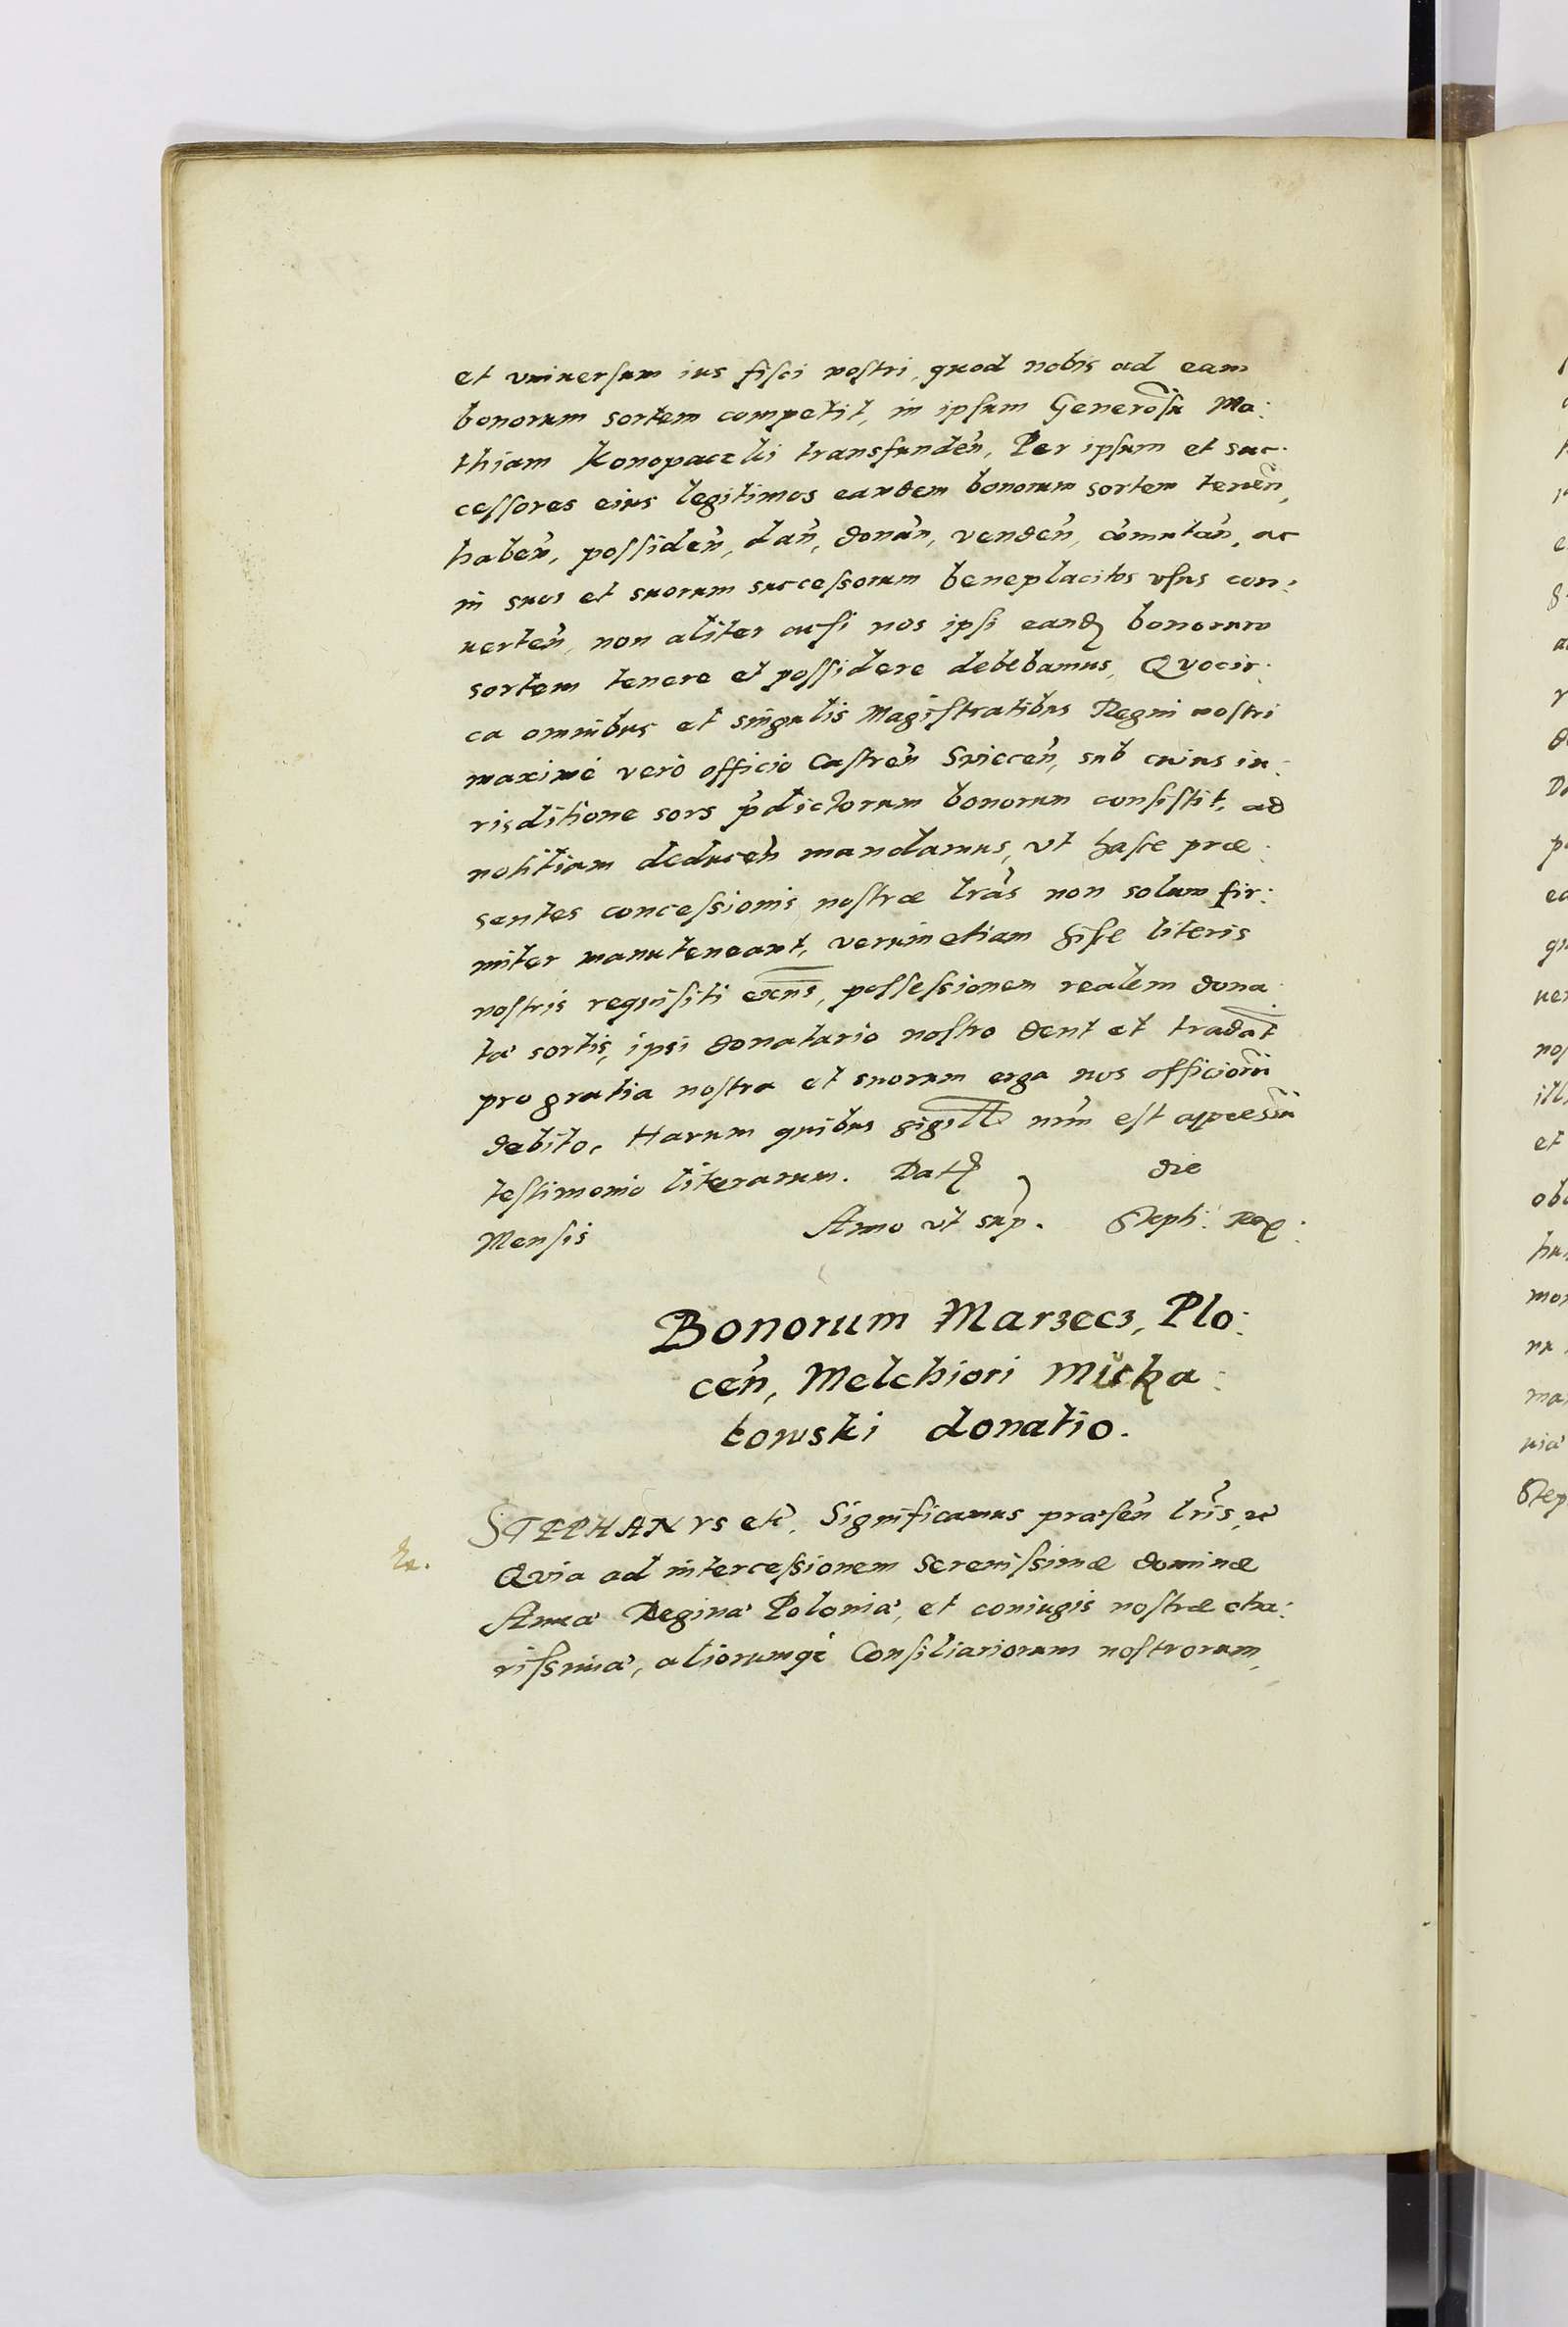 et vniuersum ius fisci nostri, quod nobis ad eam
bonorum sortem competit, in ipsum Generosũ Ma:
thiam Konopaczki transfundeñ, Per ipsum et suc:
cessores eius legitimos eandem bonorum sortem teneñ,
habeñ, possideñ, dañ, donañ, vendeñ, cõmutañ, ac
in suos et suorum successorum beneplacitos vsus con:
uerteñ, non aliter acsi nos ipsi eandꝫ bonorum
sortem tenere et possidere debebamus, Quocir:
ca omnibus et singulis Magistratibus Regni nostri
maximè verò officio Castreñ Sviecеñ, sub cuius iu:
risditione sors p̃dictorum bonorum consistit, ad
notitiam deduceñ mandamus, vt hasce præ:
sentes concessionis nostræ lrãs non solum fir:
miter manuteneant, verum etiam hisce literis
nostris requisiti exñs, possessionem realem dona:
tæ sortis, ipsi donatario nostro dent et tradãt
pro gratia nostra et suorum erga nos officiorũ
debito. Harum quibus sigill nrm̃ est appressũ
testimonio literarum. Datꝫ die
Mensis Anno vt sup̃. Steph: Rex:
Bonorum Marzecz, Plo:
ceñ, Melchiori Micha:
lowski donatio.
STEPHANVS etc̃. Significamus præseñ lrĩs, etc̃
Quia ad intercessionem Serenissimæ dominæ
Annæ Reginæ Poloniæ, et coniugis nostræ cha:
rissimæ, aliorumqꝫ Consiliariorum nostrorum,